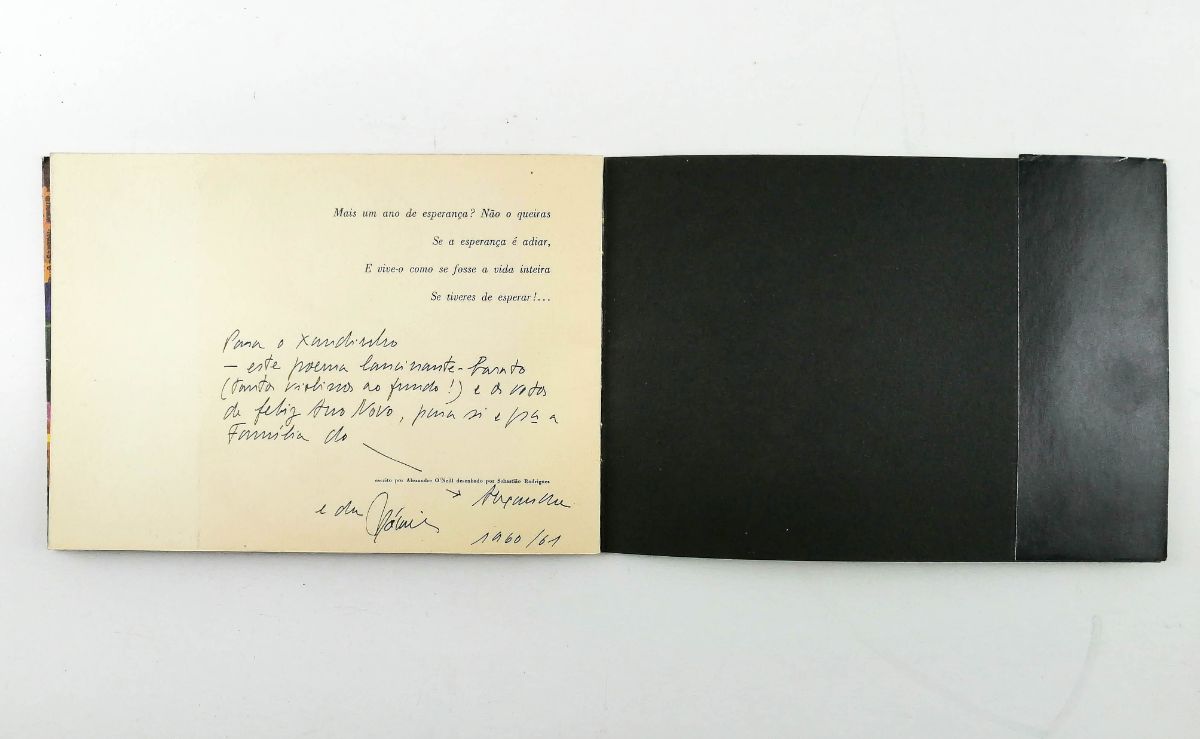 Mais um ano de esperança? Não o queiras
Se a esperança é adiar,
E vive-o como se fosse a vida inteira
Se tiveres de esperar!...
Para o Xandinho
— este poema lancinante-barato
(tantos violinos ao fundo!) e os votos
de feliz Ano Novo, para si e pra a
Família do
escrito por Alexandre O'Neill desenhado por Sebastião Rodrigues
Alexandre
e da Noémia
1960/61